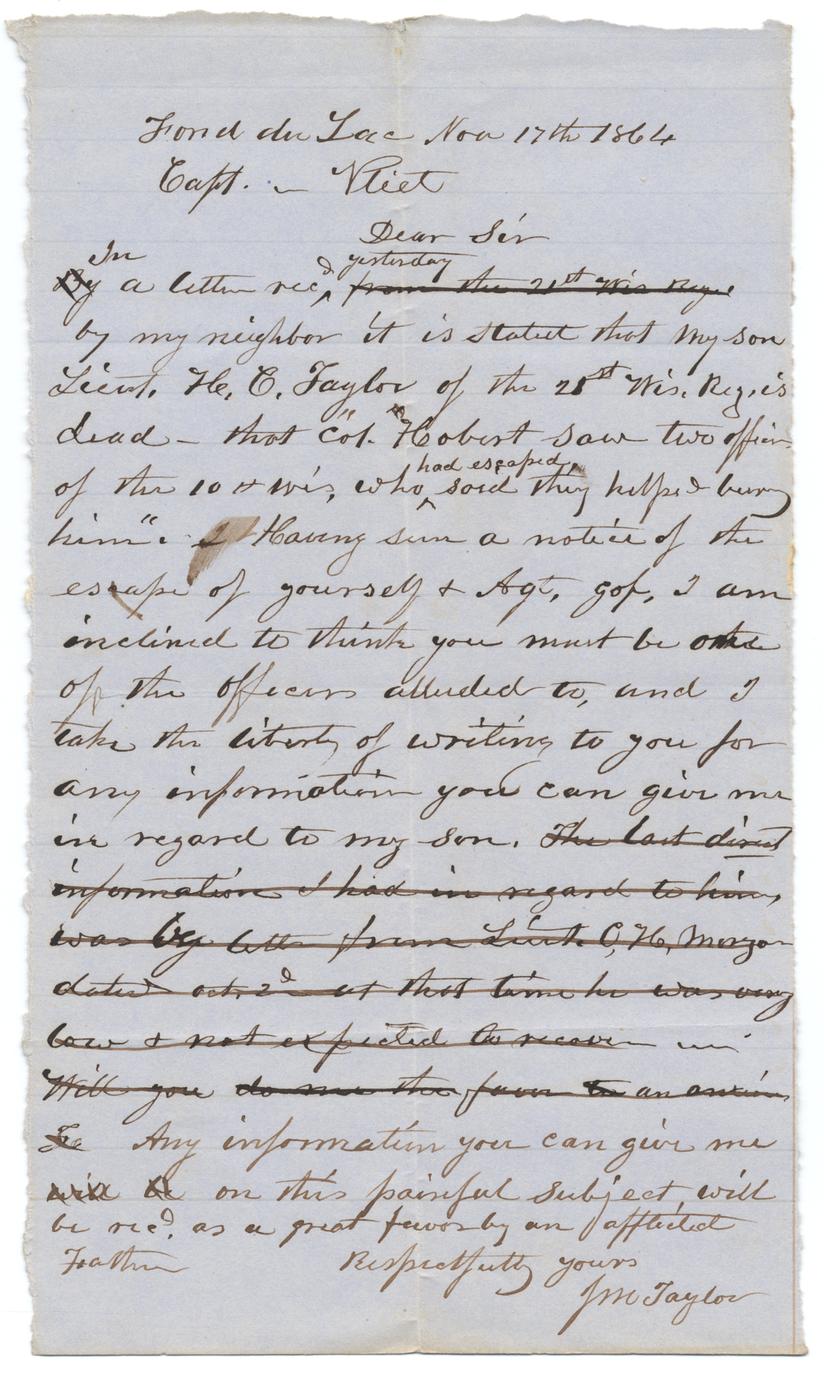 Fond du Lac Nov 17th 1864
Capt. – Vliet
Dear Sir
In yesterday
By a letter recd from the 21st Wis Regt
by my neighbor it is stated that my son
Lieut. H. C. Taylor of the 21st Wis. Reg. is
dead – that "Col. Hobert saw two officers
had escaped,
of the 10th Wis, who said they helped bury
him". I Having seen a notice of the
escape of yourself & Agt, gof, I am
inclined to think you must be one
of the officers alluded to, and I
take the liberty of writing to you for
any information you can give me
in regard to my son. The last direct
information I had in regard to him,
was by letter from Lieut. O, H, Morgan
dated oct. 2d at that time he was very
low & not expected to recover
Will you do me the favor to an
To Any information you can give me
will be on this painful subject, will
be recd. as a great favor by an afflicted
Father Respectfully yours
J M Taylor